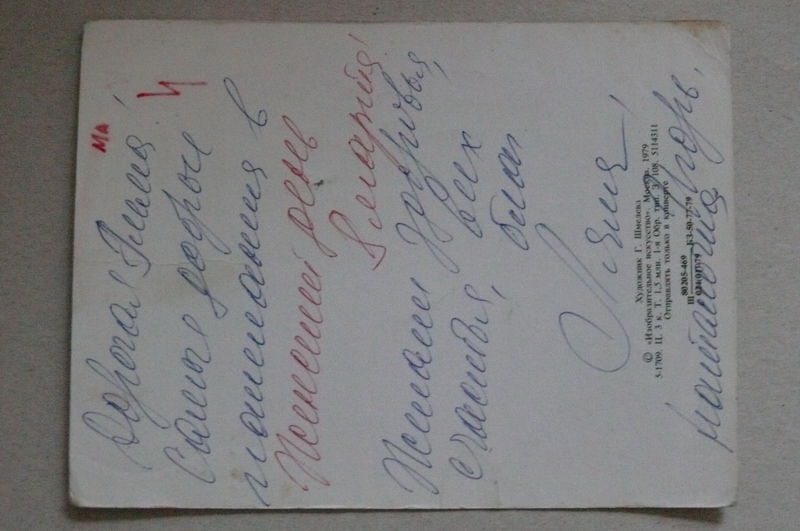 Дорогая
ма
самые добрые
и
пожелания в
Женский день
8 марта!
Желаем здоровья,
счастья, всех
благ
Юля,
Игорь,
Наташа
Художник Г. Шмелева
© «Изобразительное искусство». Москва. 1979
5-1709. Ц. 3 к. Т. 1,5 млн. 1-я Обр. тип. З. 108. 5114311
Отправлять только в конверте
80205-469 БЗ-50-77-79